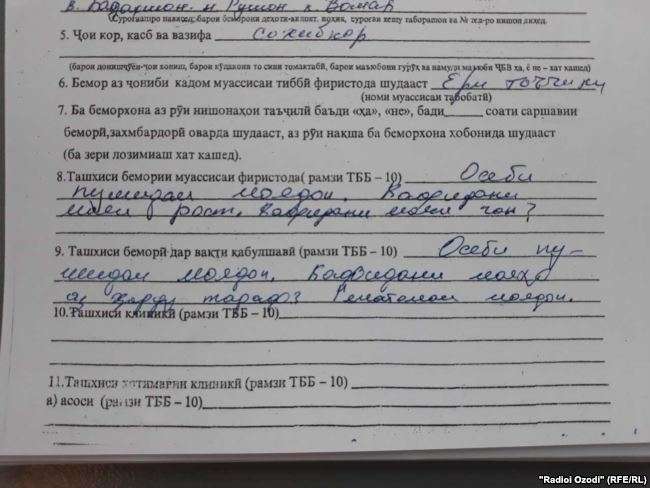 в. Бадахшон н. Рушон к. Вомар
Суроғашро нависед, барои беморони деҳоти-вилоят, ноҳия, суроғаи хешу таборашон ва № тел-ро нишон диҳед.
5. Ҷои кор, касб ва вазифа соҳибкор
(барои донишҷӯён-ҷои хониш, барои кӯдакони то сини томактабӣ, барои маъюбони гурӯҳ ва намуди маъюби ҶБВ ҳа, ё не - хат кашед)
6. Бемор аз ҷониби кадом муассисаи тиббӣ фиристода шудааст Ёрии таъҷилӣ
(номи муассисаи табобатӣ)
7. Ба беморхона аз рӯи нишонаҳои таъҷилӣ баъди «ҳа», «не», бади______ соати саршавии
беморӣ,захмбардорӣ оварда шудааст, аз рӯи нақша ба беморхона хобонида шудааст
(ба зери лозимиаш хат кашед).
8.Ташхиси бемории муассисаи фиристода( рамзи ТББ – 10) Осеби
пушидаи майдаи. Кафидани
рост. Кафидани чап?
9. Ташхиси беморӣ дар вақти қабулшавӣ (рамзи ТББ – 10) Осеби пу-
шидаи Кафидани
аз ҳарду тараф.
10.Ташхиси клиникӣ (рамзи ТББ – 10)
11.Ташхиси хотимавии клиникӣ (рамзи ТББ – 10)
а) асоси (рамзи ТББ – 10)
"Radioi Ozodi" (RFE/RL)